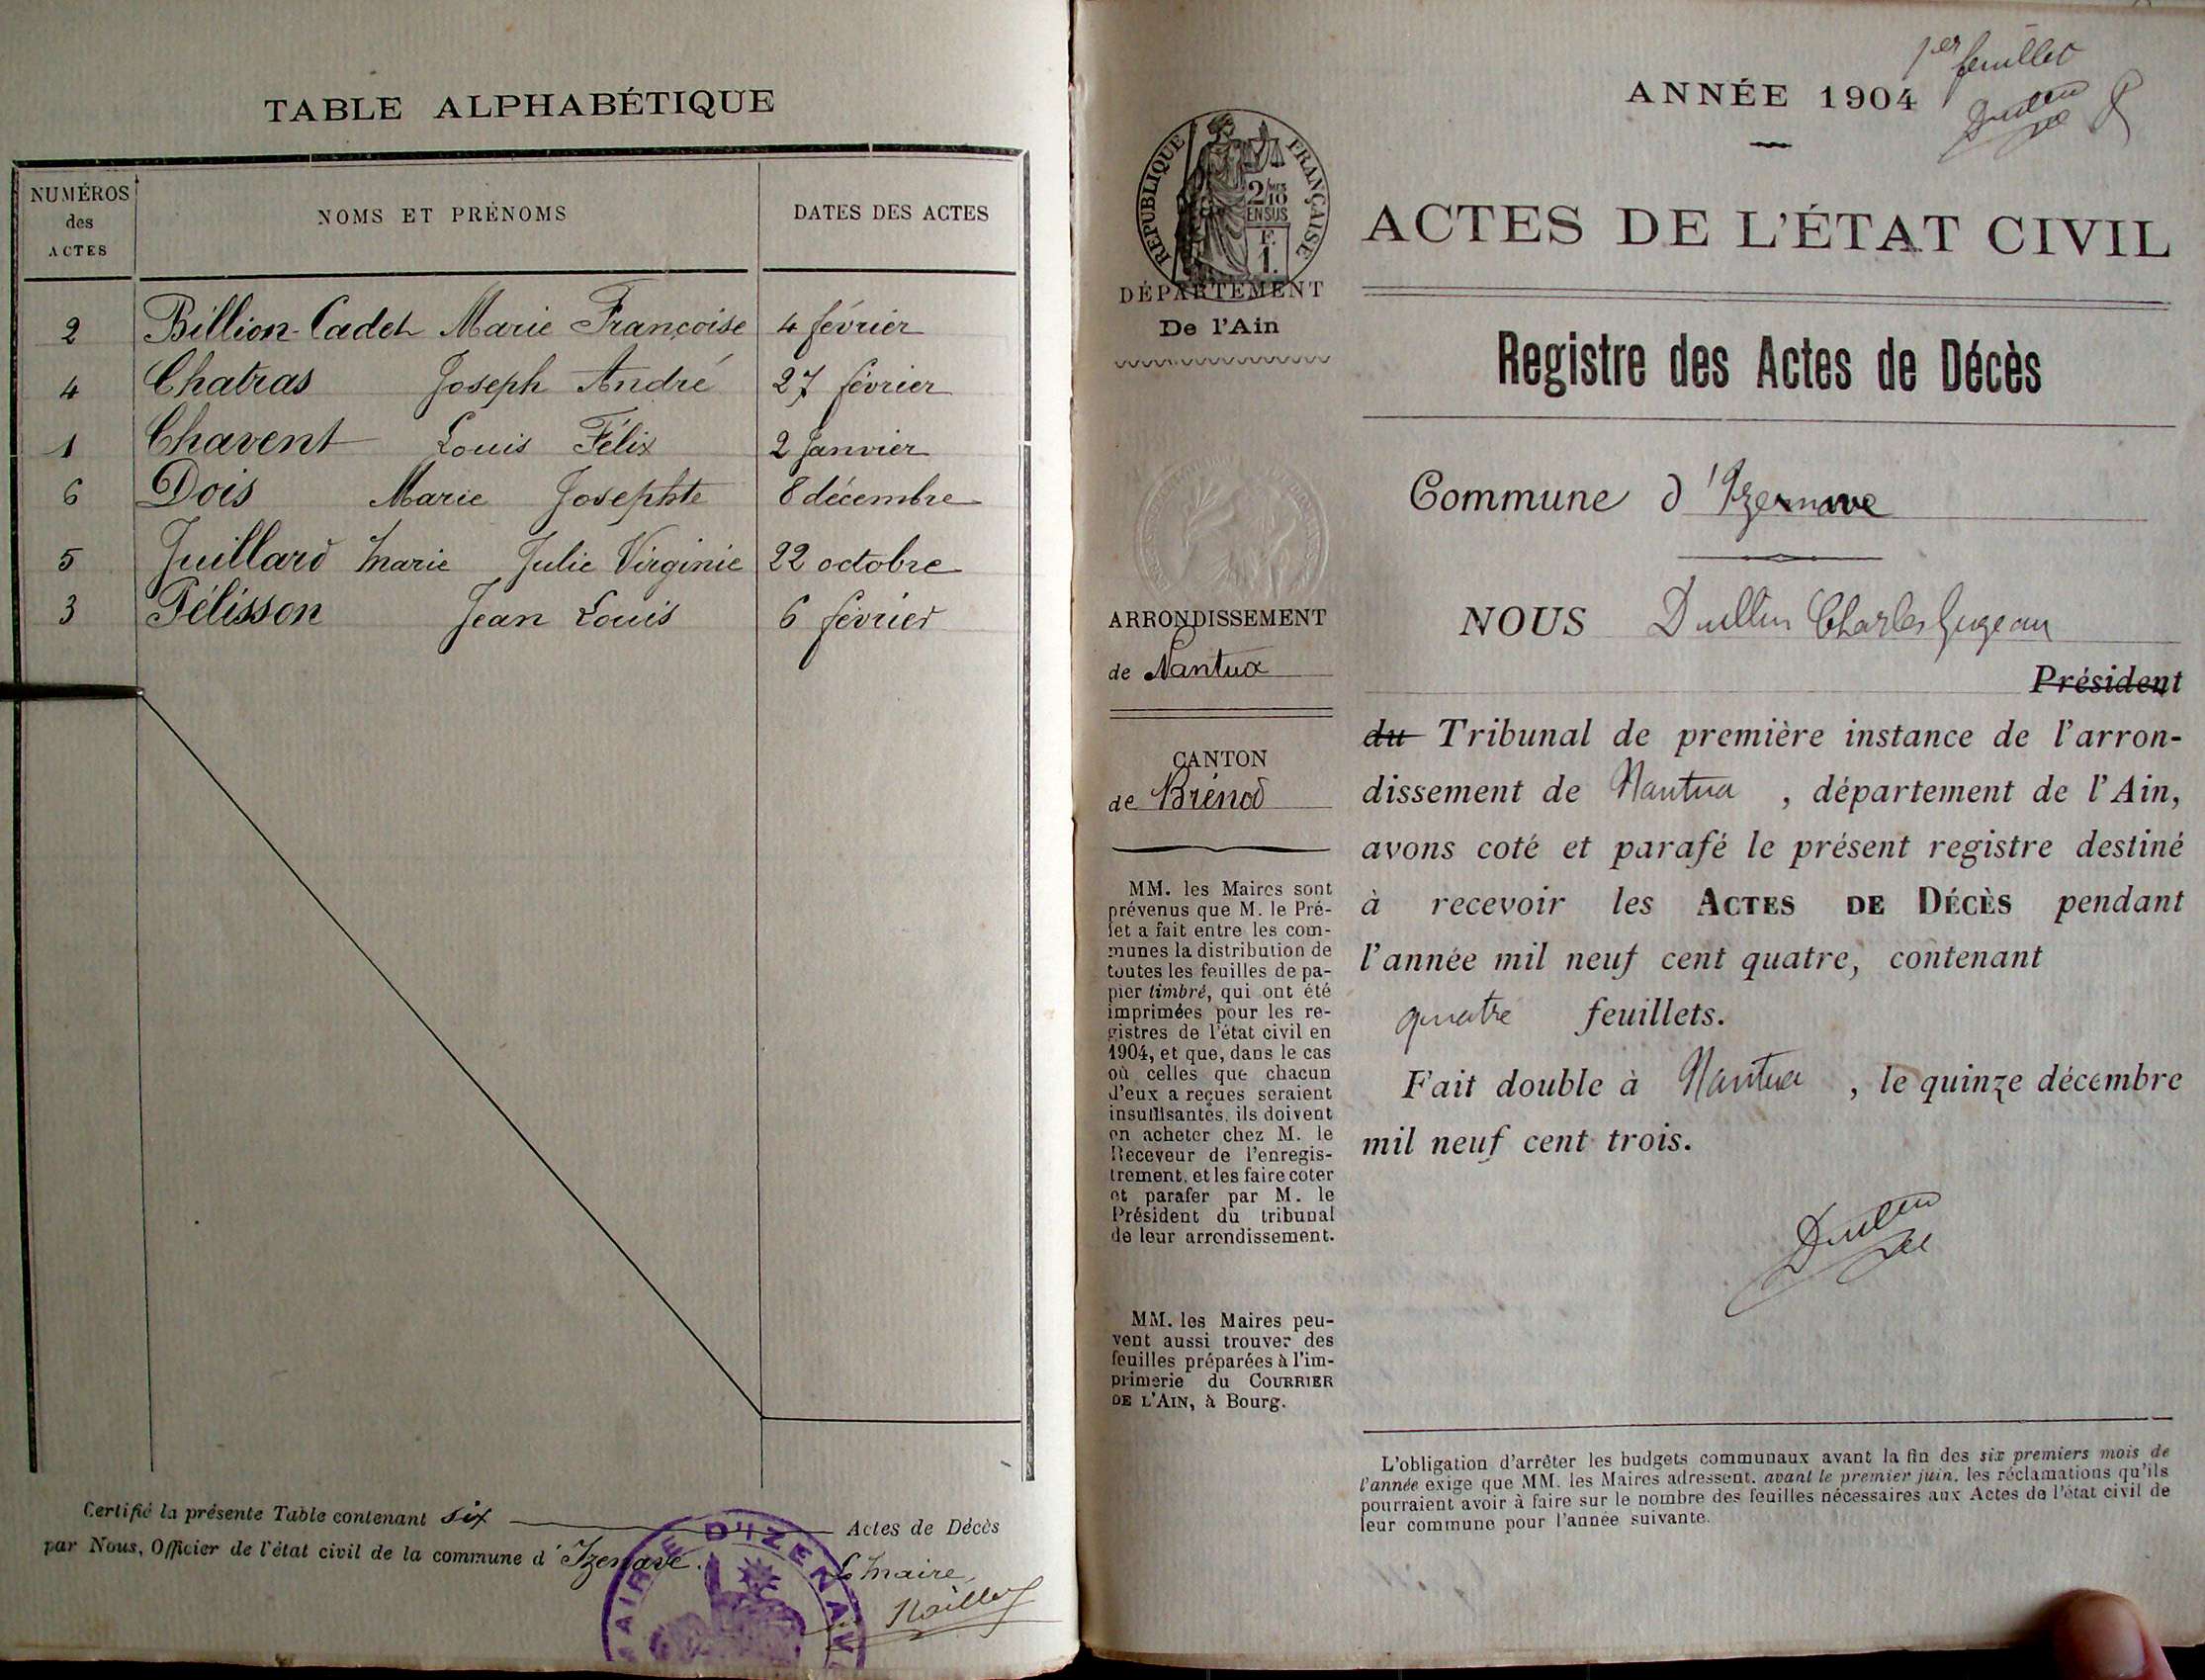 TABLE ALPHABÉTIQUE
NUMÉROS des ACTES
NOMS ET PRÉNOMS
DATES DES ACTES
2 Billion-Cadet Marie Françoise 4 février
4 Chatras Joseph André 27 février
1 Chavent Louis Félix 2 Janvier
6 Dois Marie Josephte 8 décembre
5 Juillard marie Julie Virginie 22 octobre
3 Pélisson Jean Louis 6 février
Certifié la présente Table contenant six Actes de Décès
par Nous, Officier de l'état civil de la commune d'Izenave.
MAIRIE D'IZENAVE
Le maire,
1er feuillet
ANNÉE 1904
RÉPUBLIQUE FRANÇAISE
2/10 EN SUS
F. 1.
DÉPARTEMENT
De l'Ain
ARRONDISSEMENT
de Nantua
CANTON
de Brénod
MM. les Maires sont
prévenus que M. le Pré-
fet a fait entre les com-
munes la distribution de
toutes les feuilles de pa-
pier timbré, qui ont été
imprimées pour les re-
gistres de l'état civil en
1904, et que, dans le cas
où celles que chacun
d'eux a reçues seraient
insuffisantes, ils doivent
en acheter chez M. le
Receveur de l'enregis-
trement, et les faire coter
et parafer par M. le
Président du tribunal
de leur arrondissement.
MM. les Maires peu-
vent aussi trouver des
feuilles préparées à l'im-
primerie du COURRIER
DE L'AIN, à Bourg.
ACTES DE L'ÉTAT CIVIL
Registre des Actes de Décès
Commune d'Izenave
NOUS Dullin Charles
Président
du Tribunal de première instance de l'arron-
dissement de Nantua, département de l'Ain,
avons coté et parafé le présent registre destiné
à recevoir les ACTES DE DÉCÈS pendant
l'année mil neuf cent quatre, contenant
quatre feuillets.
Fait double à Nantua, le quinze décembre
mil neuf cent trois.
Dullin
L'obligation d'arrêter les budgets communaux avant la fin des six premiers mois de
l'année exige que MM. les Maires adressent, avant le premier juin, les réclamations qu'ils
pourraient avoir à faire sur le nombre des feuilles nécessaires aux Actes de l'état civil de
leur commune pour l'année suivante.